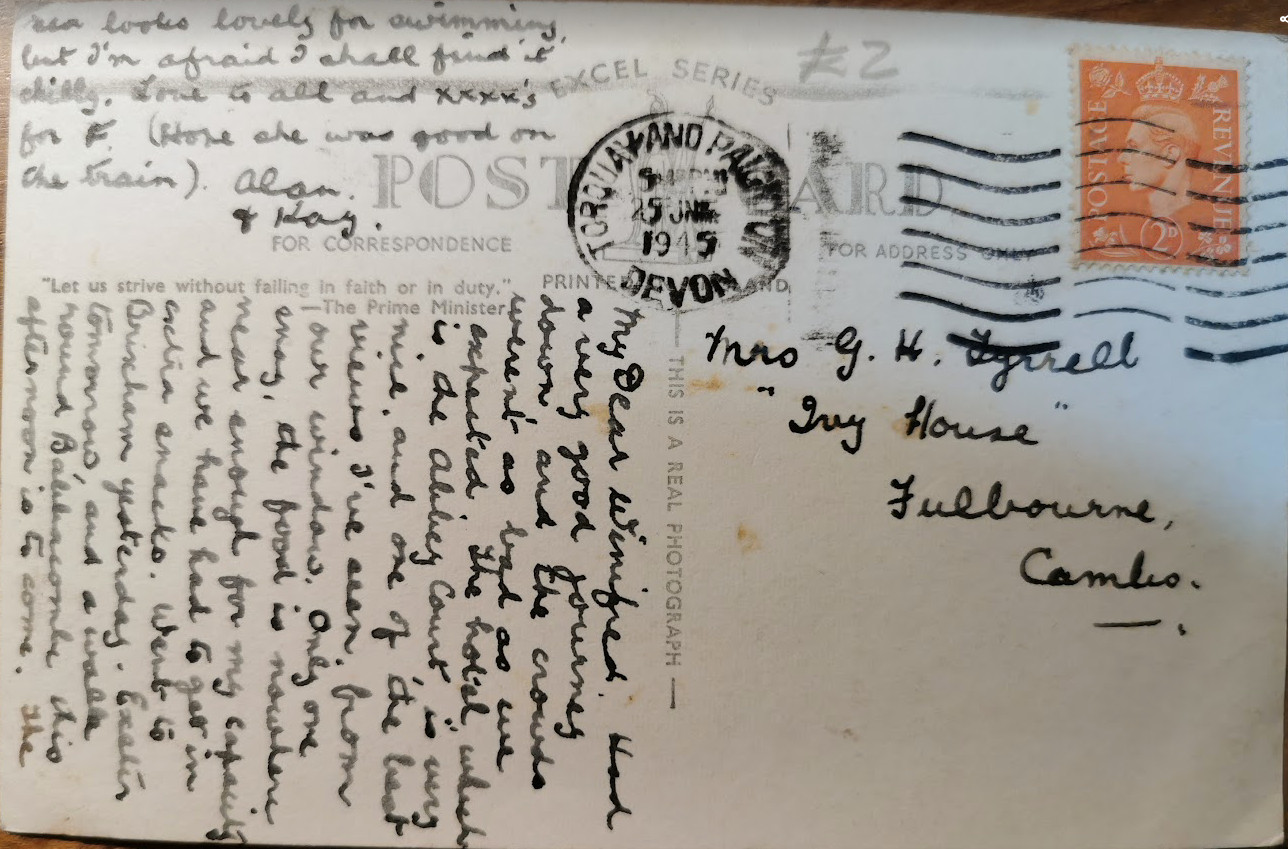 £2
EXCEL SERIES
POST CARD
FOR CORRESPONDENCE
FOR ADDRESS ONLY
"Let us strive without failing in faith or in duty."
—The Prime Minister.
PRINTED
THIS IS A REAL PHOTOGRAPH
TORQUAY AND PAIGNTON
25 JNE
1945
DEVON
POSTAGE
REVENUE
2D
Mrs G. H. Tyrrell
"Ivy House"
Fulbourne,
Cambs.
My Dear Winifred. Had
a very good journey
down and the crowds
weren't as bad as we
expected. The hotel which
is the Abbey Court is very
nice and one of the best
views I've seen from
our window. Only one
snag, the food is nowhere
near enough for my capacity
and we have had to get in
extra snacks. Went to
Brixham yesterday. Exeter
tomorrow and a walk
round Babbacombe this
afternoon is to come. The
sea looks lovely for swimming,
but I'm afraid I shall find it
chilly. Love to all and xxxx's
for F. (Hope she was good on
the train). Alan.
& Kay.